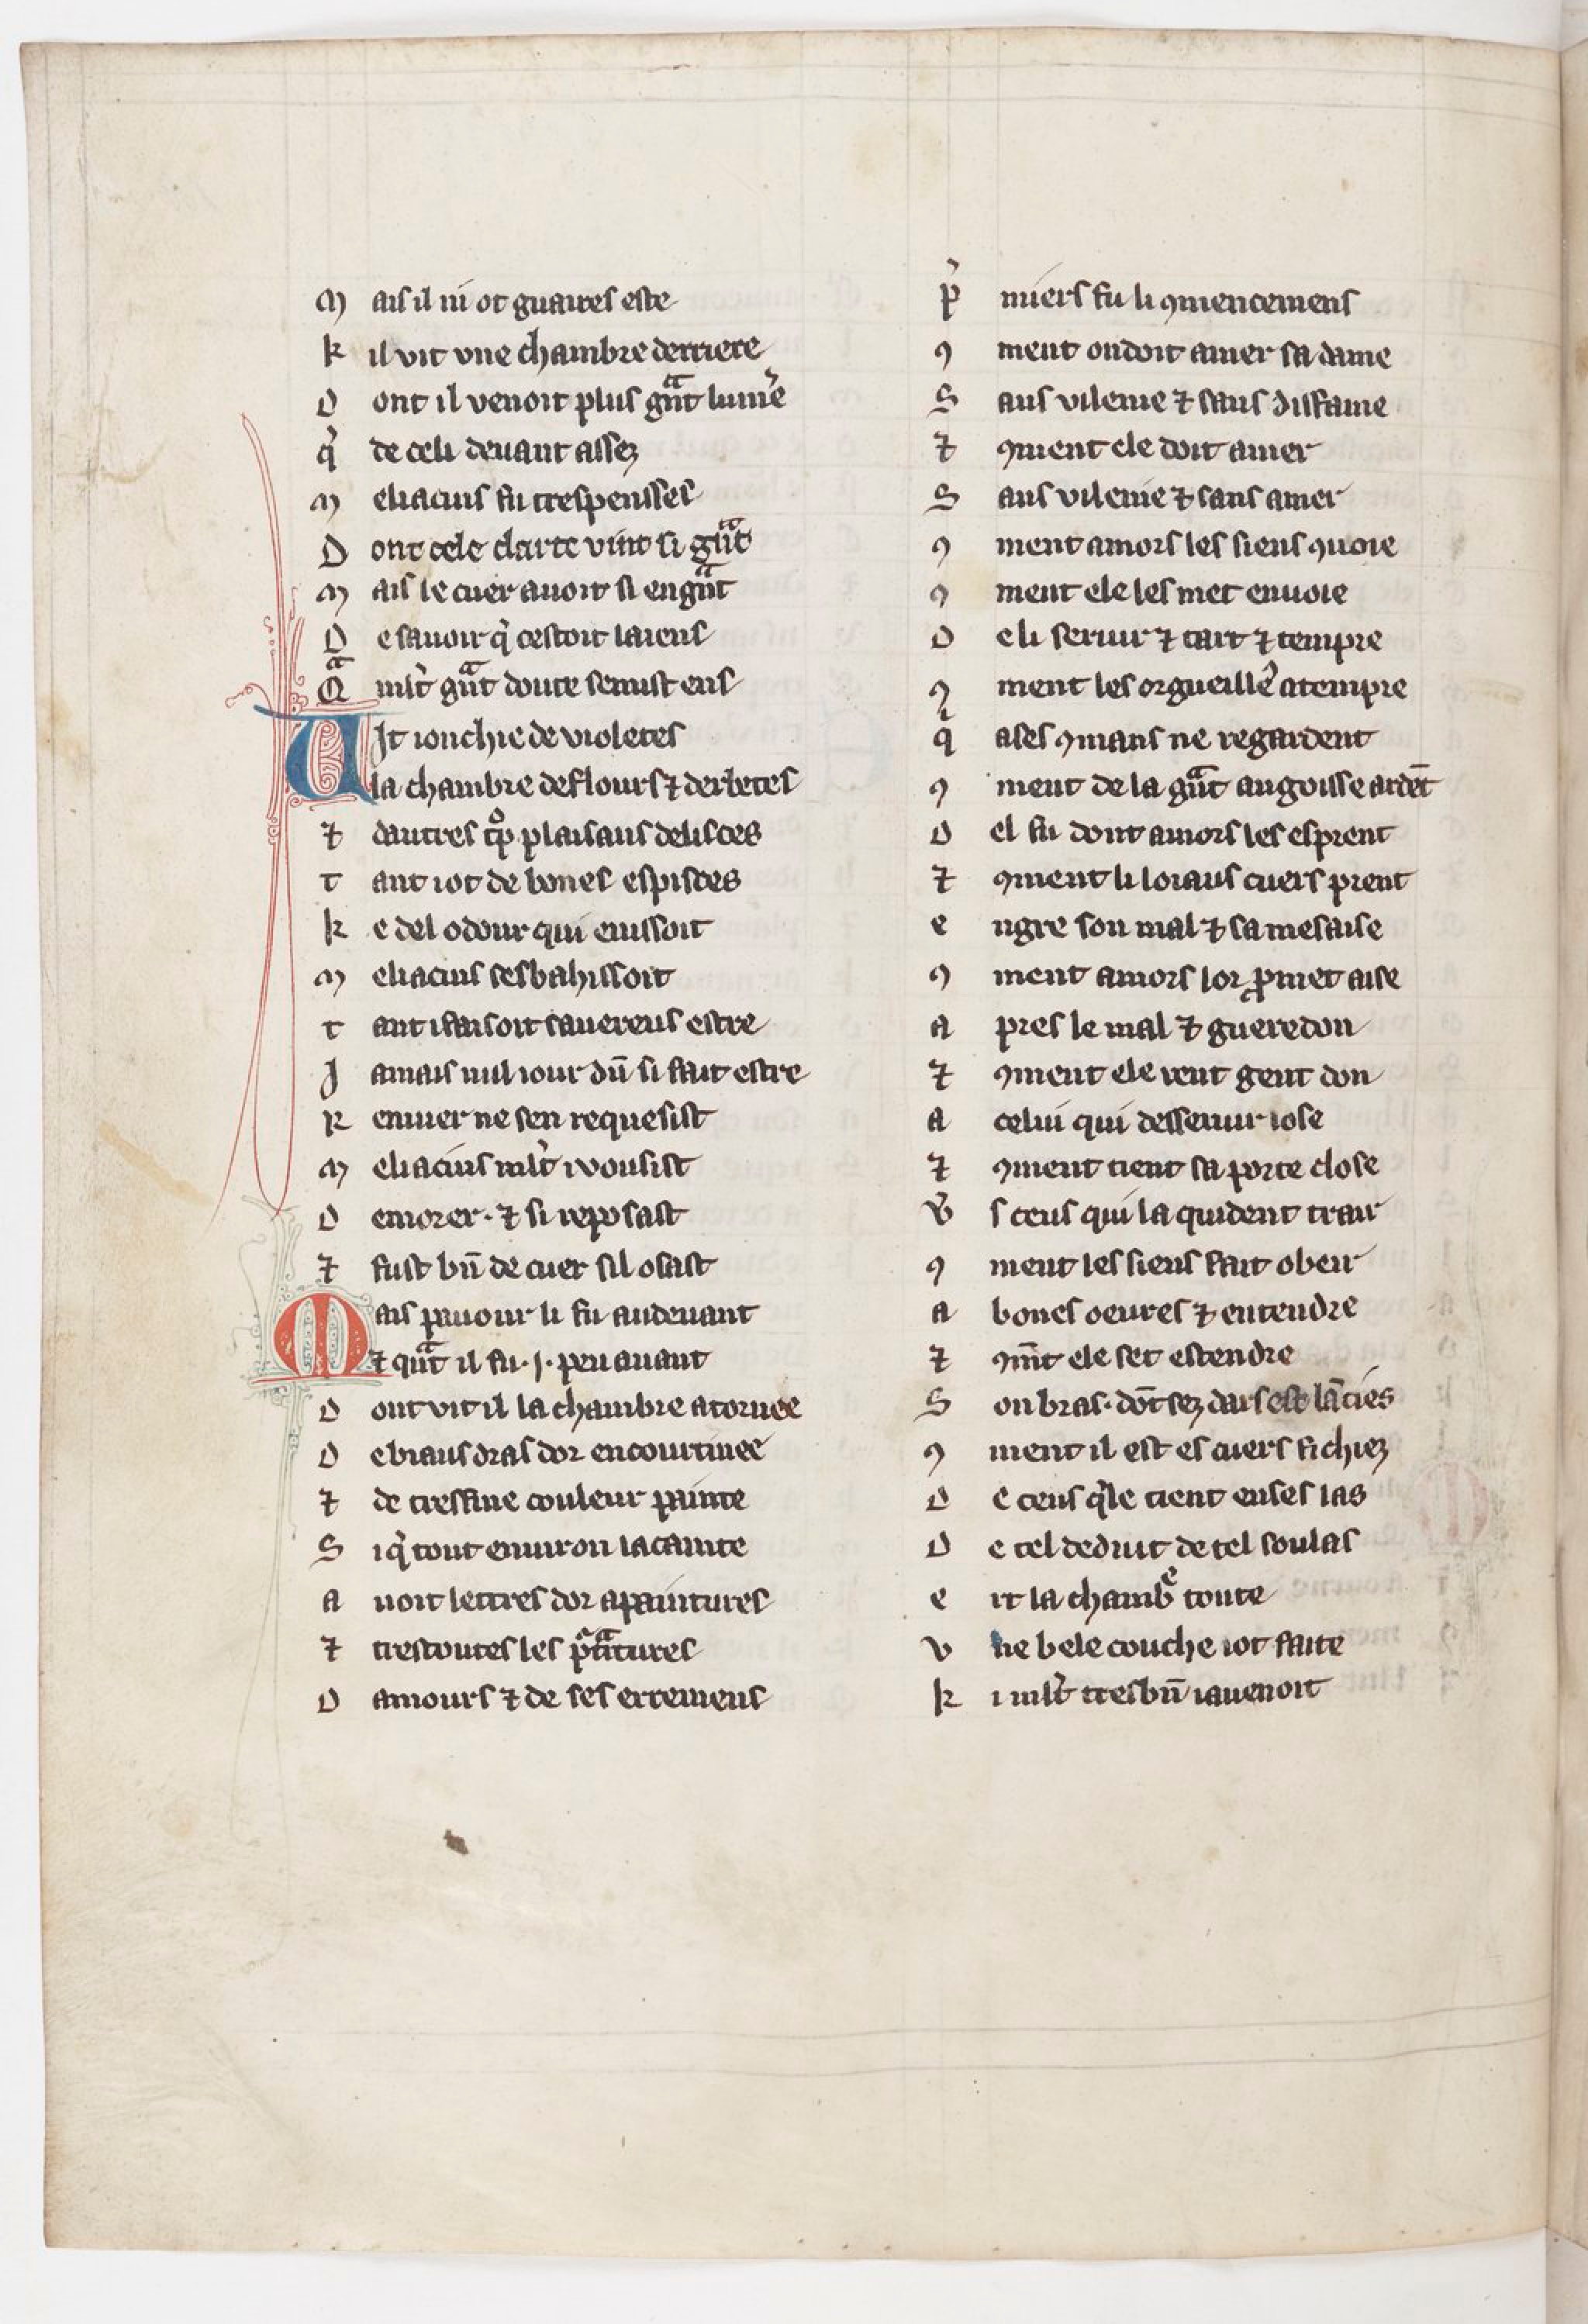 M ais il ni ot guaires este
k il vit vne chambre derriere
D ont il venoit plus gͣnt lumie᷑
q̓ de celi deuant assez
M eliacins fu trespensses
D ont cele clarte vint si gͣnt
M ais le cuer auoit si en gͣnt
D e sauoir q̓ cestoit laiens
Qͣ mlt̓ gͣnt doute se mist ens
UIt ionchie de violetes
la chambre de flours ⁊ derbetes
⁊ dautres tͦp plaisans delisces
t ant i ot de bones espisces
k e del odour qui en issoit
M eliacins sesbahissoit
t ant i faisoit sauereus estre
J amais nul iour dun̄ si fait estre
R enuier ne sen requesist
M eliacins mlt̓ i vousist
D emorer · ⁊ si reposast
⁊ fust bn̄ de cuer sil osast
Mais paour li fu au deuant
⁊ qͣnt il fu · j · peu auant
D ont vit il la chambre atornee
D e biaus dras dor encourtinee
⁊ de tresfine couleur painte
S i q̓ tout enuiron la cainte
a uoit lettres dor a paintures
⁊ trestoutes les p̓ͣtures
D amours ⁊ de ses erremens
p̓ miers fu li ꝯmencemens
ꝯ ment on doit amer sa dame
S ans vilenie ⁊ sans diffame
⁊ ꝯment ele doit amer
S ans vilenie ⁊ sans amer
ꝯ ment amors les siens ꝯuoie
ꝯ ment ele les met en voie
D e li seruir ⁊ tart ⁊ tempre
ꝯ ment les orgueille᷑ atempre
qͥ a ses ꝯmans ne regardent
ꝯ ment de la gͣnt angoisse ardēt
D el fu dont amors les esprent
⁊ ꝯment li loiaus cuers prent
e ngre son mal ⁊ sa mesaise
ꝯ ment amors lor ꝓmet aise
a pres le mal ⁊ gueredon
⁊ ꝯment ele rent gent don
a celui qui desseruir lose
⁊ ꝯment tient sa porte close
v̓ s ceus qui la quident trair
ꝯ ment les siens fait obeir
a bones oeures ⁊ entendre
⁊ ꝯmt̄ ele set estendre
S on bras · dōt sez dars est lācies
ꝯ ment il est es cuers fichiez
D e ceus q̓le tient en ses las
D e tel deduit de tel soulas
e rt la chambᵉ toute
v ne bele couche i ot faite
k i mlt̓ tres bn̄ i auenoit